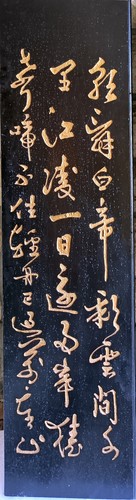 朝辭白帝彩雲間千
里江陵一日還兩岸猿
聲啼不住輕舟已過萬重山